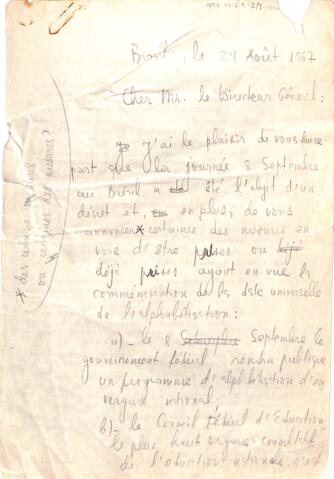 Brésil, le 24 Août 1967
Cher Mr. le Directeur Général:
J'ai le plaisir de vous faire
part que la journée 8 Septembre
au Brésil a été l'objet d'un
décret et, en plus, de vous
annoncer* certaines des mesures en
voie d'être prises ou déjà
déjà prises ayant en vue la
commémoration de la date universelle
de l'alphabétisation:
a)- le 8 Septembre le
gouvernement fédéral rendra publique
un programme d'alphabétisation d'en
vergure national;
b)- le Conseil Fédéral d'Education,
le plus haut organe consultatif
de l'éducation nationale, s'est
* des
ou certaines des mesures?